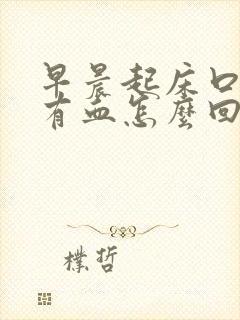 早晨起床口
有血怎麼回
樸哲